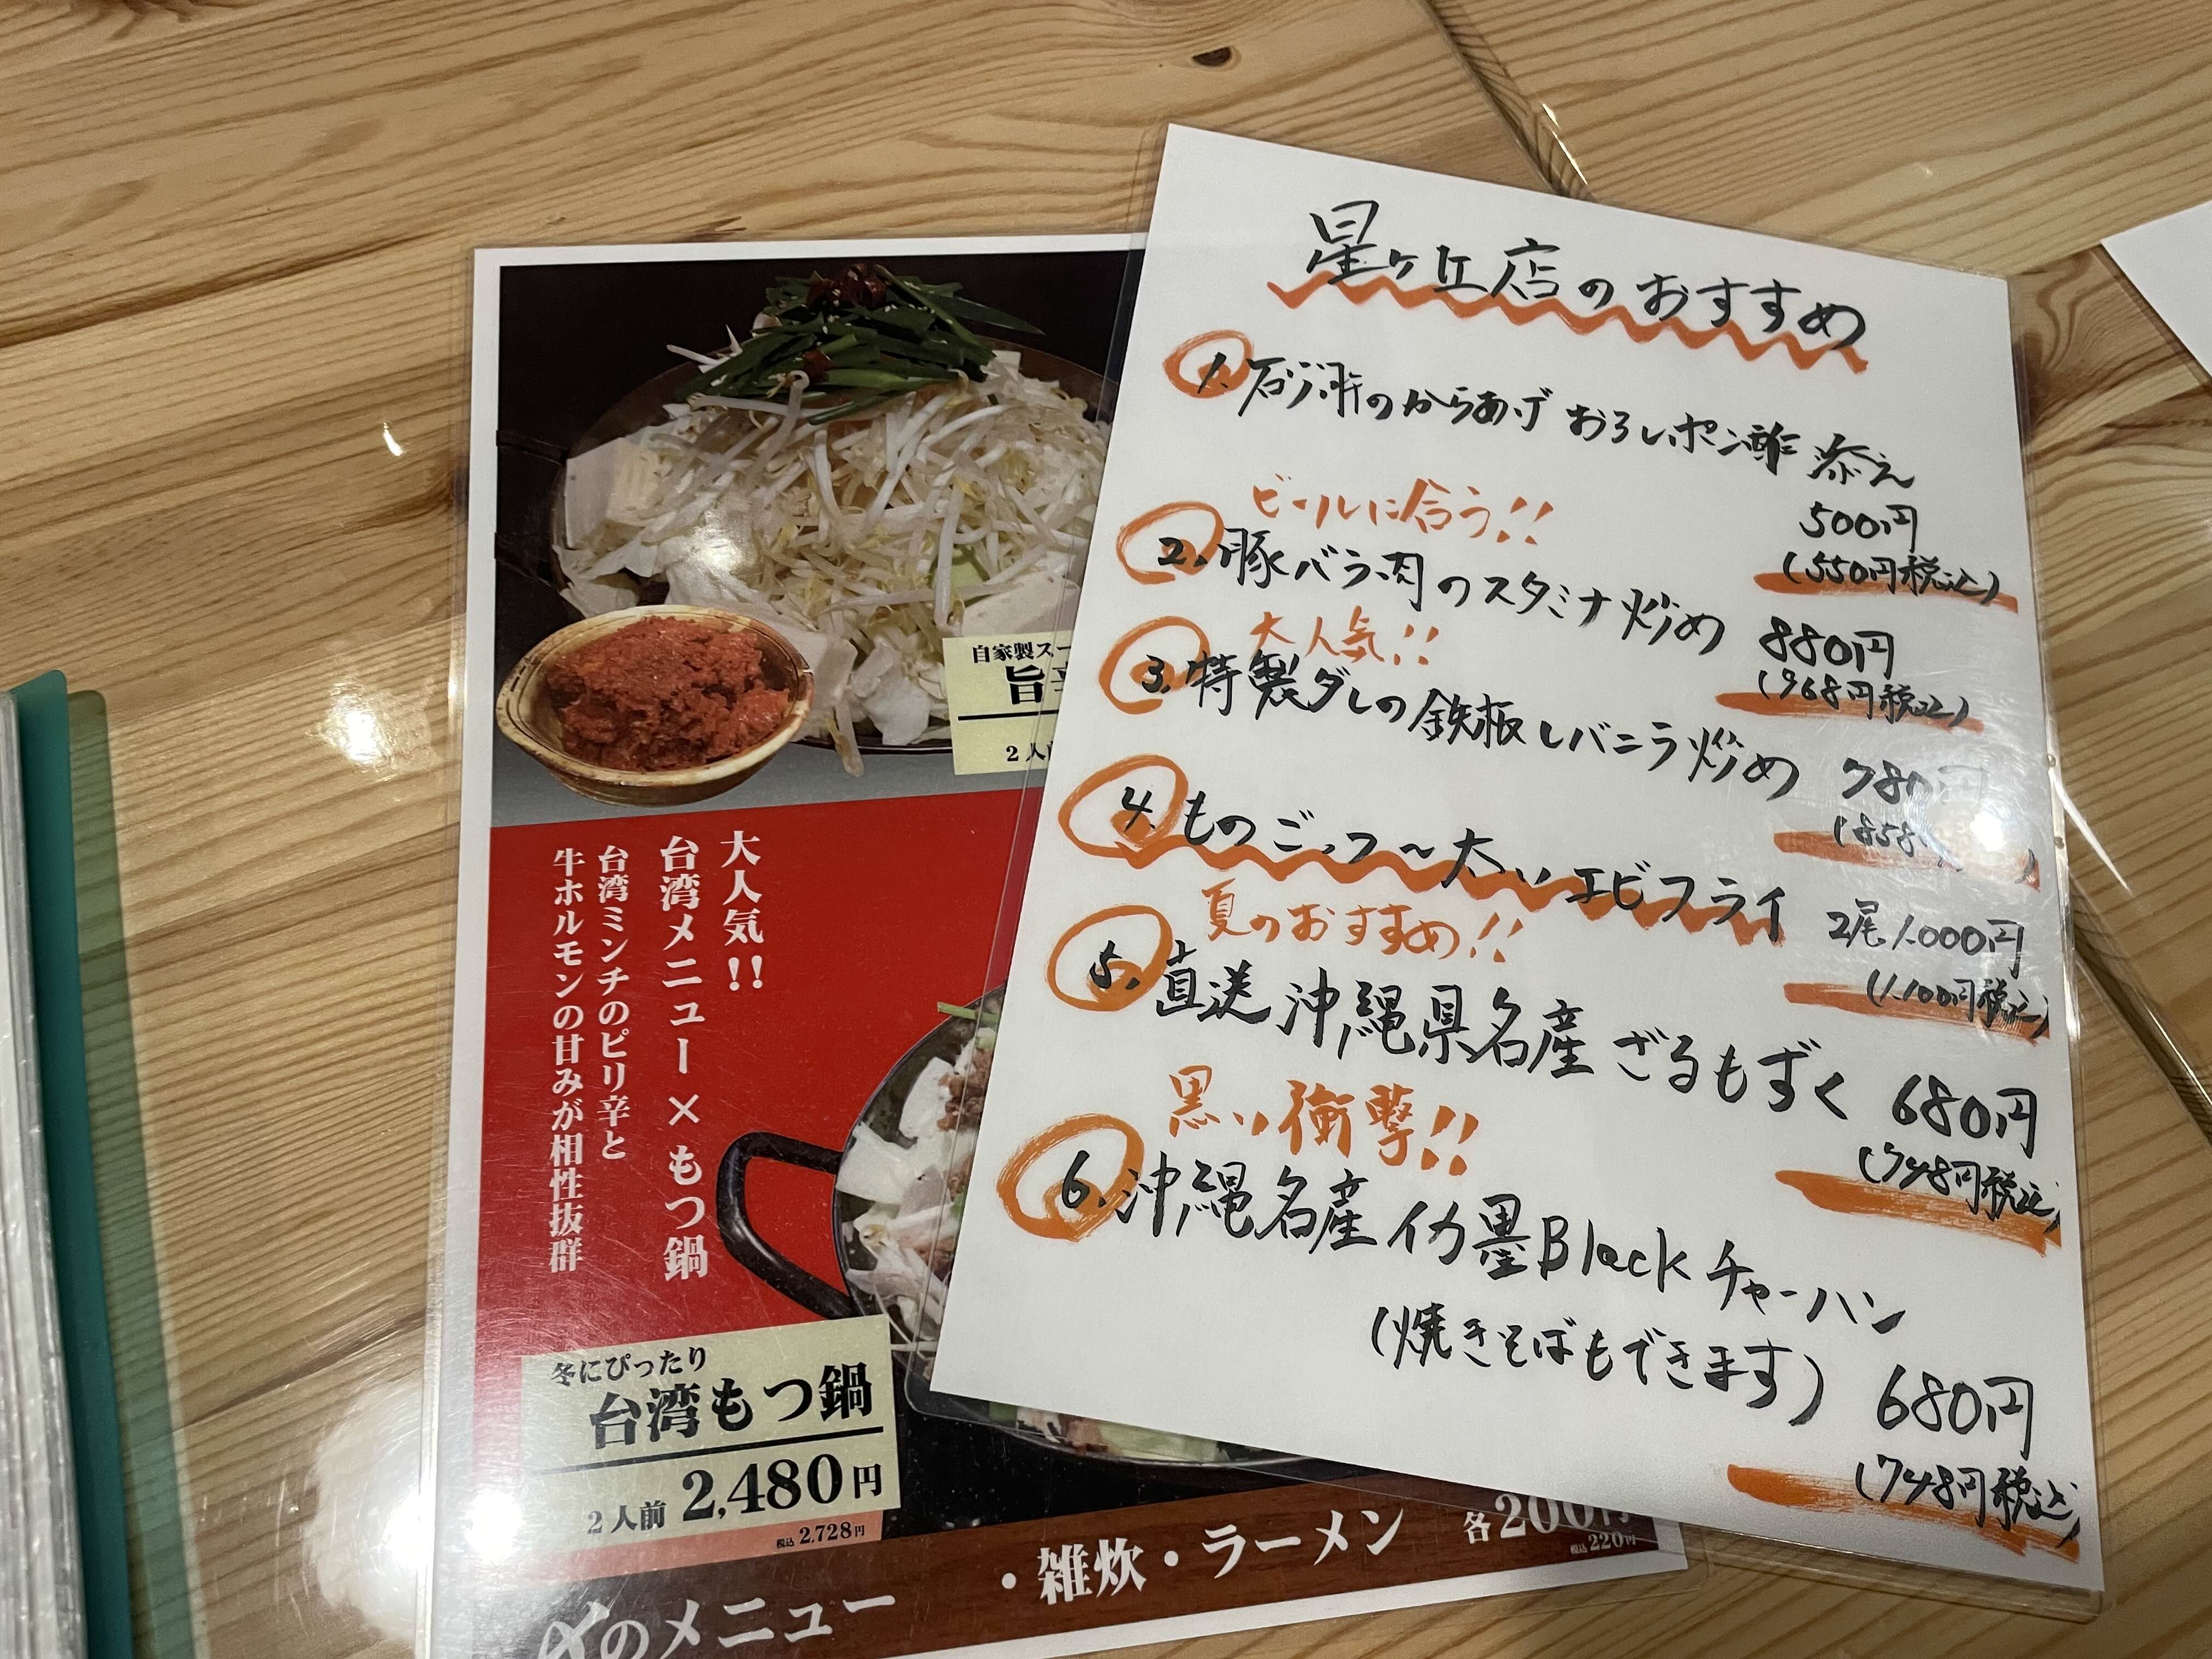 星ヶ丘店のおすすめ
1. 砂肝のからあげ おろしポン酢 添え
500円
(550円税込)
ビールに合う!!
2. 豚バラ肉のスタミナ炒め 880円
(968円税込)
大人気!!
3. 特製ダレの鉄板レバニラ炒め 780円
(858
4. ものごっつ〜太いエビフライ 2尾1,000円
(1,100円税込)
夏のおすすめ!!
5. 直送 沖縄県名産 ざるもずく 680円
(748円税込)
黒い衝撃!!
6. 沖縄名産 イカ墨Blackチャーハン
(焼きそばもできます) 680円
(748円税込)
自家製スー
旨辛
2人前
大人気!!
台湾メニュー×もつ鍋
台湾ミンチのピリ辛と
牛ホルモンの甘みが相性抜群
冬にぴったり
台湾もつ鍋
2人前 2,480円
税込 2,728円
〆のメニュー ・雑炊・ラーメン 各200円
税込 220円